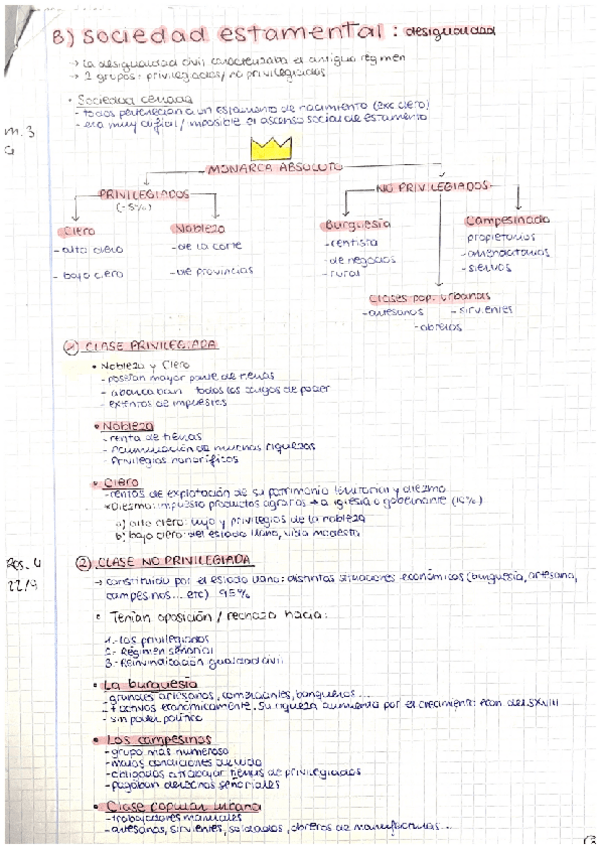 B) sociedad estamental : desigualdad
→ la desigualdad civil caracterizaba el antiguo régimen
→ 2 grupos: privilegiados/no privilegiados
• Sociedad cerrada
- todos pertenecían a un estamento de nacimiento (exc clero)
- era muy difícil / imposible el ascenso social de estamento
MONARCA ABSOLUTO
PRIVILEGIADOS
(-5%)
NO PRIVILEGIADOS
Clero
- alto clero
- bajo clero
Nobleza
- de la corte
- de provincias
Burguesía
- rentista
- de negocios
- rural
Campesinado
propietarios
- arrendatarios
- siervos
Clases pop. urbanas
- artesanos - sirvientes
- obreros
CLASE PRIVILEGIADA
• Nobleza y Clero
- poseían mayor parte de tierras
- abarcaban todos los cargos de poder
- exentos de impuestos
• Nobleza
- renta de tierras
- acumulación de muchas riquezas
- Privilegios honoríficos
• Clero
- rentas de explotación de su patrimonio territorial y diezmo
* Diezmo: impuesto productos agrarios → a iglesia o gobernante (10%)
a) alto clero: lujo y privilegios de la nobleza
b) bajo clero: del estado llano, vida modesta
22/9
2) CLASE NO PRIVILEGIADA
→ constituido por el estado llano: distintas situaciones económicas (burguesía, artesano,
campesinos... etc) 95%
• Tenían oposición / rechazo hacia:
1.- Los privilegiados
2.- Régimen señorial
3.- Reinvindicación igualdad civil
• La burguesía
- grandes artesanos, comerciantes, banqueros...
- + activos económicamente. Su riqueza aumenta por el crecimiento econ del SXVIII
- sin poder político
• Los campesinos
- grupo más numeroso
- malas condiciones de vida
- obligados a trabajar tierras de privilegiados
- pagaban derechos señoriales
• Clase popular urbana
- trabajadores manuales
- artesanos, sirvientes, soldados, obreros de manufacturas...